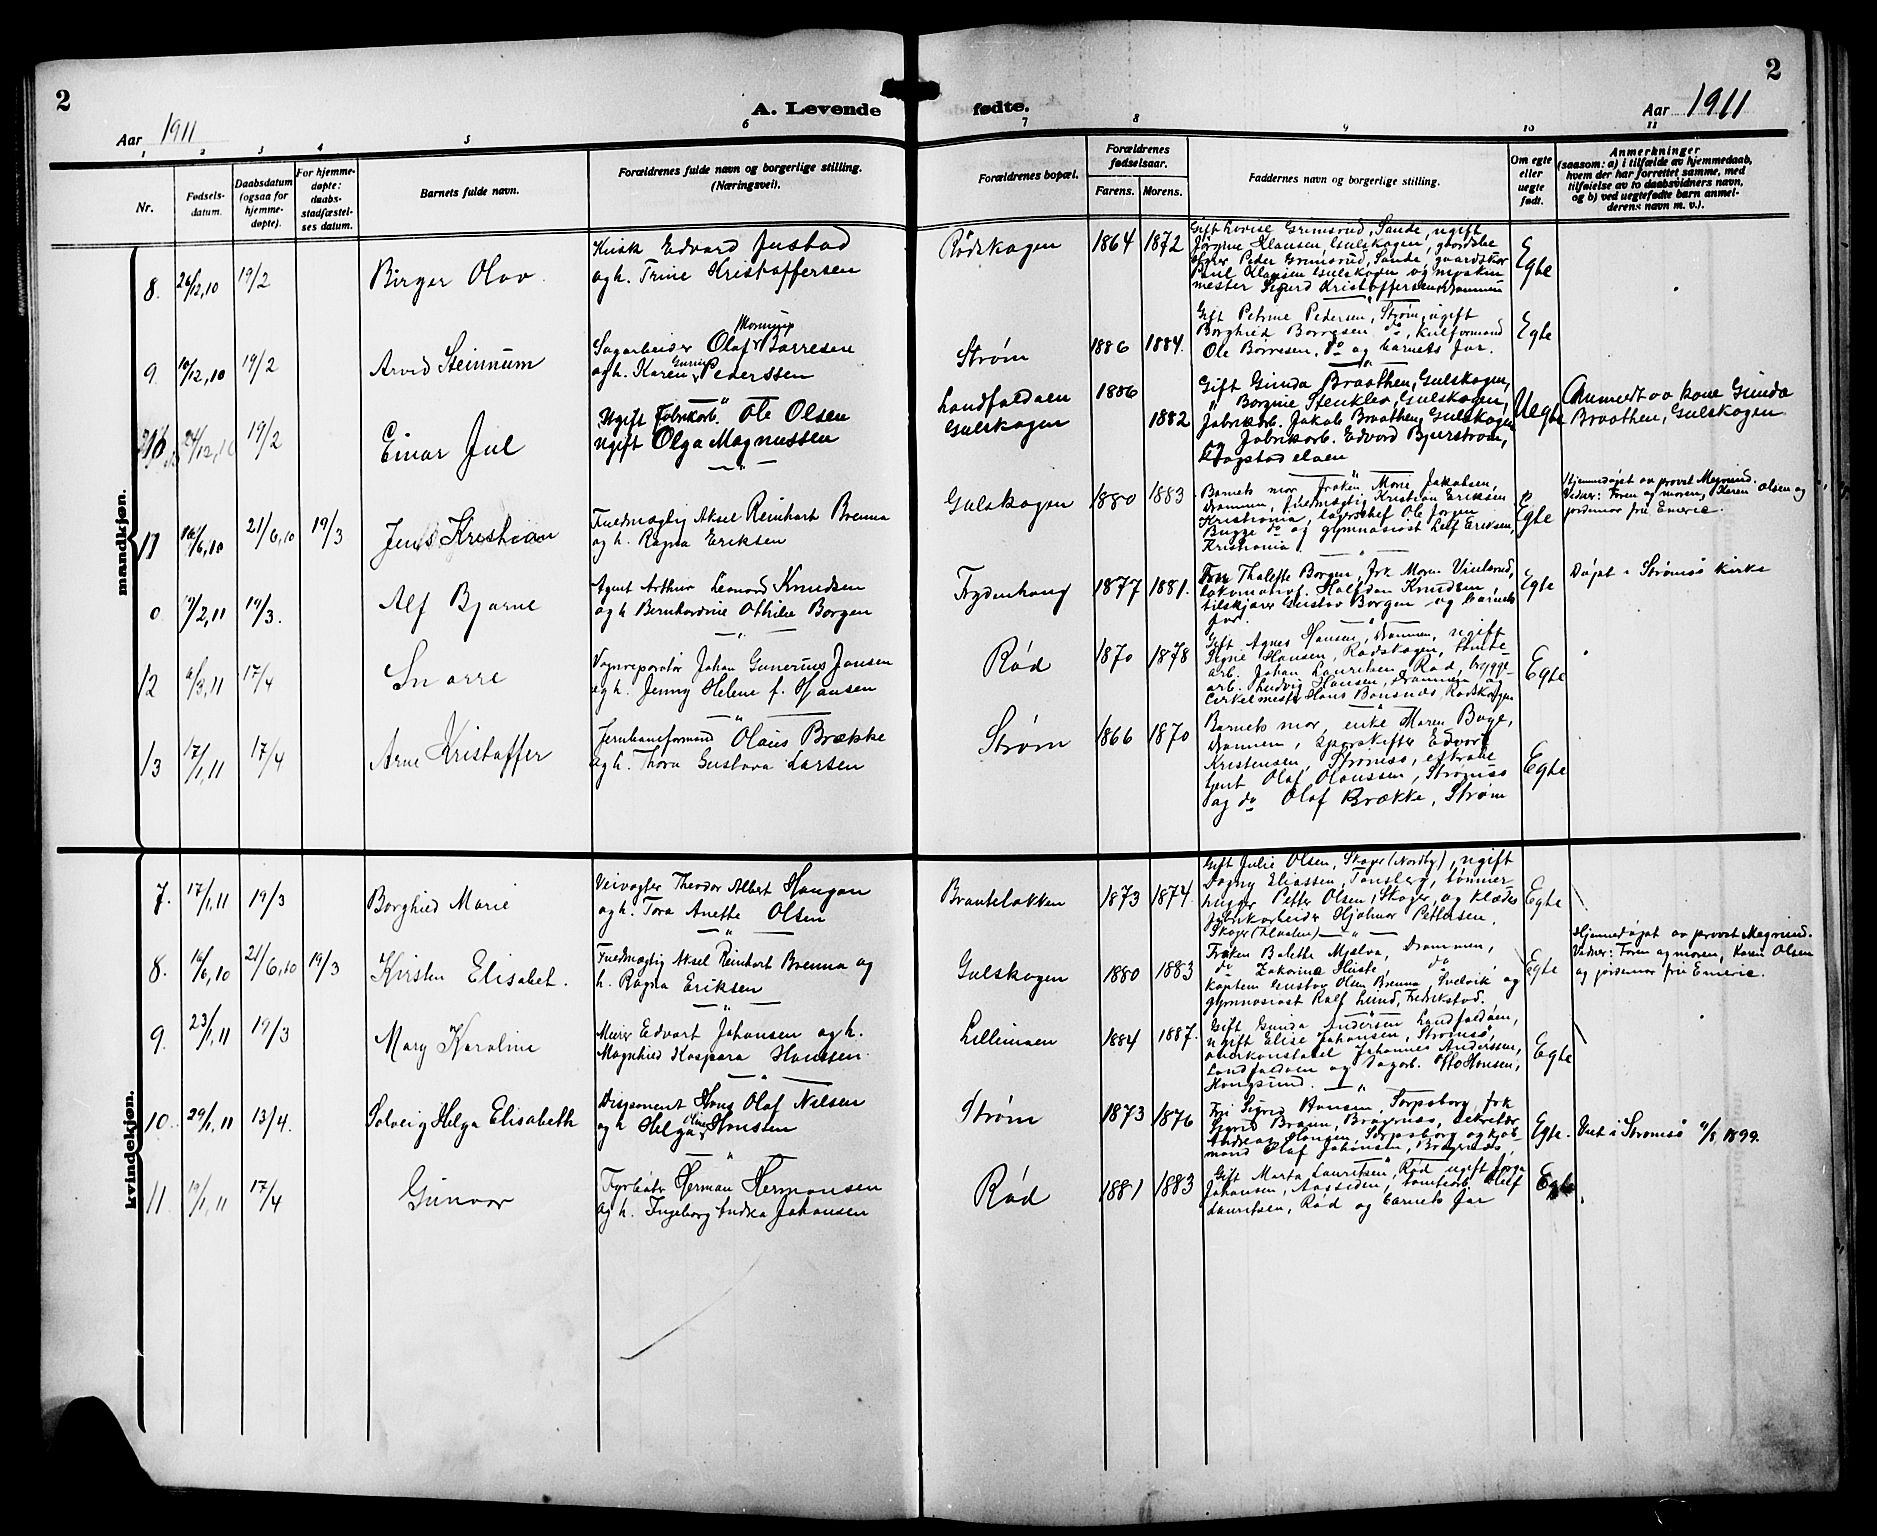 2
2
A. Levende fødte.
Aar 1911
Aar 1911
1 2 3 4 5 6 7 8 9 10 11
Nr.
Fødsels-
datum.
Daabsdatum
(ogsaa for
hjemme-
døpte).
For hjemme-
døpte:
daabs-
stadfæstel-
ses datum.
Barnets fulde navn.
Forældrenes fulde navn og borgerlige stilling.
(Næringsvei).
Forældrenes bopæl.
Forældrenes
fødselsaar.
Farens. Morens.
Faddernes navn og borgerlige stilling.
Om egte
eller
uegte
født.
Anmerkninger
(saasom: a) i tilfælde av hjemmedaab,
hvem der har forrettet samme, med
tilføielse av to daabsvidners navn,
og b) ved uegtefødte barn anmel-
derens navn m. v.).
mandkjøn.
8. 26/12,10 19/2 Birger Olav
Kusk Edvard Justad
og h. Trine Kristoffersen
Rødskogen 1864 1872
Gift Lovise Grimsrud, Sande, ugift
Jørgine Klausen, Gulskogen, gaardsbe
styrer Peder Grimsrud, Sande, gaardsbr
Paul Klausen Gulskogen og maskin
mester Sigurd Kristoffersen, Drammen
Egte
9. 10/12,10 19/2 Arvid Steinum
Sagarbeider Olaf Børresen
og h. Karen Pederssen
Strøm 1886 1884.
Gift Petrine Pedersen, Strøm, ugift
Borghild Børresen, do, kulformand
Ole Børresen, do og barnets far.
Egte
10 24/12,10 19/2 Einar Jul
Ugift Fabrikarb. Ole Olsen
Ugift Olga Magnussen
Landfaldøen 1886
Gulskogen 1882
Gift Gunda Braathen, Gulskogen,
" Borgine Stenklev, Gulskogen,
fabrikarb. Jakob Braathen, Gulskogen
og fabrikarb. Edvard Bjerstrøm,
Uegte
Anmeldt av kone Gunda
Braathen, Gulskogen
11 16/6,10 21/6,10 19/3 Jens Kristian
Fuldmægtig Aksel Reinhart Brenna
og h. Ragna Eriksen
Gulskogen 1880 1883
Barnets mor, frøken Marie Jakobsen,
Drammen, fuldmægtig Kristian Eriksen
Kristiania, lagerchef Ole Jørgen
Bugge do og gymnasiast Leif Eriksen,
Kristiania
Egte
Hjemmedøpt av provst Magelund.
Vidner: Faren og moren, Karen Olsen og
jordmor fru Emerie.
0 19/2,11 19/3. Alf Bjarne
Agent Arthur Leonard Knudsen
og h Bernhardine Othilie Borgen
Frydenhaug 1877 1881.
Fru Thalette Borgen, frk Maren Vinlund,
lokomotivf. Halfdan Knudsen,
tilskjærer Gustav Borgen og barnets
far.
Egte
Døpt i Strømsø kirke
12 6/3,11 17/4 Snorre
Vognreparatør Johan Gunerius Jansen
og h. Jenny Helene f. Hansen
Rød 1870 1878
Gift Agnes Hansen, Drammen, ugift
Signe Hansen, Rødskogen, skifte-
arb. Johan Lauritsen, Rød, brygge-
arb. Ludvig Hansen, Drammen og
Cirkelmester Hans Bonsnæs, Rødskogen
Egte
13 17/1,11 17/4 Arne Kristoffer
Jernbaneformand Olaus Brække
og h. Thora Gustava Larsen
Strøm 1866 1870
Barnets mor, enke Maren Boge,
Drammen, sporskifter Edvart
Kristensen, Strømsø,
Olaf Olaussen, Strømsø
og do Olaf Brække, Strøm
Egte
kvindekjøn.
7. 17/1,11 19/3 Borghild Marie
Veivogter Theodor Albert Haugan
og h. Tora Anette Olsen
Branteløkken 1873 1874.
Gift Julie Olsen, Skoger (Nordby), ugift
Dagny Eliassen, Tønsberg, tømmer
hugger Petter Olsen, Skoger, og klædes
fabrikarbeider Hjalmar Pettersen,
Egte
8. 16/6,10 21/6,10 19/3 Kirsten Elisabet.
Fuldmægtig Aksel Reinhart Brenna og
h. Ragna Eriksen
Gulskogen 1880 1883
Frøken Balette Mjølva, Drammen,
do Zakarine Hiiste, do
Kaptein Gustav Olsen Brenna, Svelvik og
gymnasiast Ralf Lund, Fredrikstad.
Egte
Hjemmedøpt av provst Magelund.
Vidner: Faren og moren, Karen Olsen
og jordmor fru Emerie.
9. 23/1,11 19/3 Mary Karoline
Murer Edvart Johansen og h.
Magnhild Kaspara Hansen.
Lillimoen 1884 1887.
Gift Gunda Andersen Landfaldøen,
ugift Elise Johansen, Strømsø,
overkonstabel Johannes Anderssen,
Landfaldøen og Dagarb. Otto Hansen,
Hougsund.
Egte
10. 29/1,11 13/4. Solveig Helga Elisabeth
Disponent Hans Olaf Nilsen
og h Helga Olava Hanssen
Strøm 1873 1876
Fru Sigrid Hansen, Sarpsborg, frk
Sigrid Braun, Bragernæs, sekretær
Andreas Hansen, Sarpsborg og kjøb-
mand Olaf Johansen, Bragernæs.
Egte.
Viet i Strømsø 6/8 1899.
11. 19/1,11 17/4 Gunvor
Fyrbøter Herman Hermansen
og h. Ingeborg Andrea Johansen
Rød 1881 1883
Gift Marta Lauritsen, Rød ugift Inga
Johansen, Aassiden, tomtearb Olaf
Lauritsen, Rød og barnets far
Egte